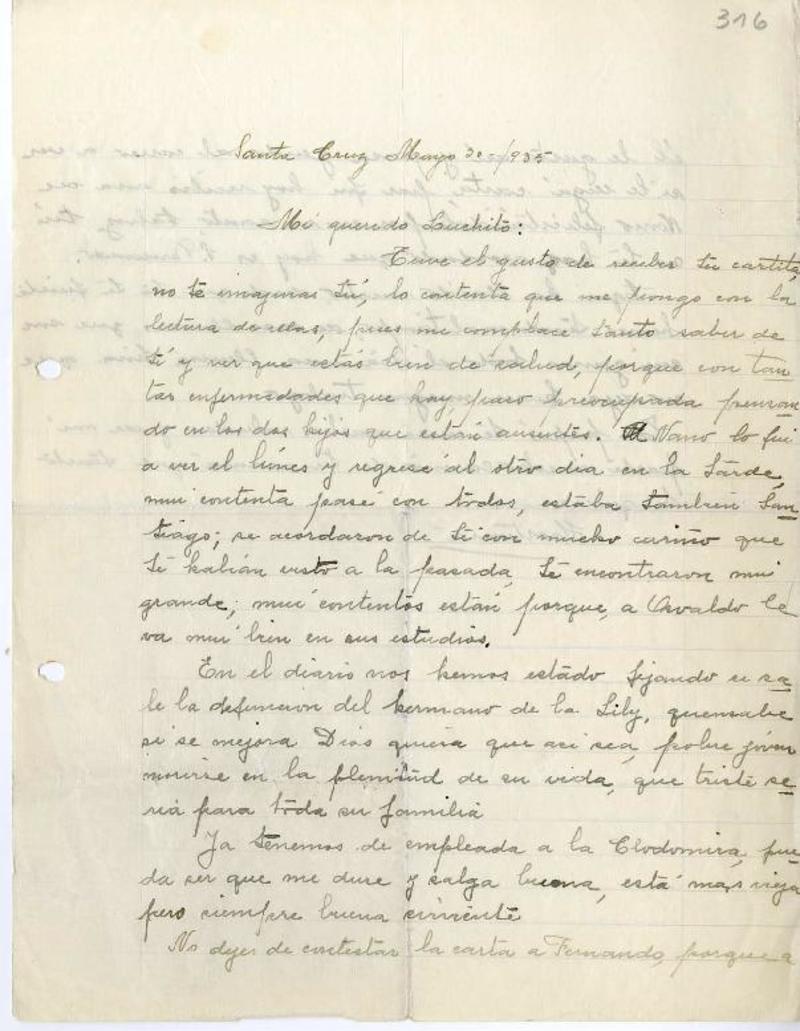 316
Santa Cruz Mayo 30-/935
Mi querido Luchito:
Tuve el gusto de recibir tu cartita,
no te imaginas tú, lo contenta que me pongo con la
lectura de ellas, pues me complace tanto saber de
tí y ver que estás bien de salud, porque con tan
tas enfermedades que hay, paso preocupada pensan
do en los dos hijos que están ausentes. Nano lo fui
a ver el lúnes y regresé al otro dia en la tarde,
mui contenta pasé con todos, estába tambien San
tiágo; se acordaron de tí con mucho cariño que
té habián visto a la pasada, té encontraron mui
grande; mui contentos están porque, a Osvaldo le
va mui bien en sus estudios.
En el diario nos hemos estádo fijando si sa
le la defuncion del hermano de la Lily, quensabe
si se mejora Dios quiera que asi sea, pobre jóven
morirse en la plenitúd de su vida, que triste se
riá para tóda su familiá
Ya tenemos de empleada a la Clodomira, pue
da ser que me dure y salga buena, está mas vieja
pero siempre buena sirviente
No dejes de contestar la carta a Fernando, porque a